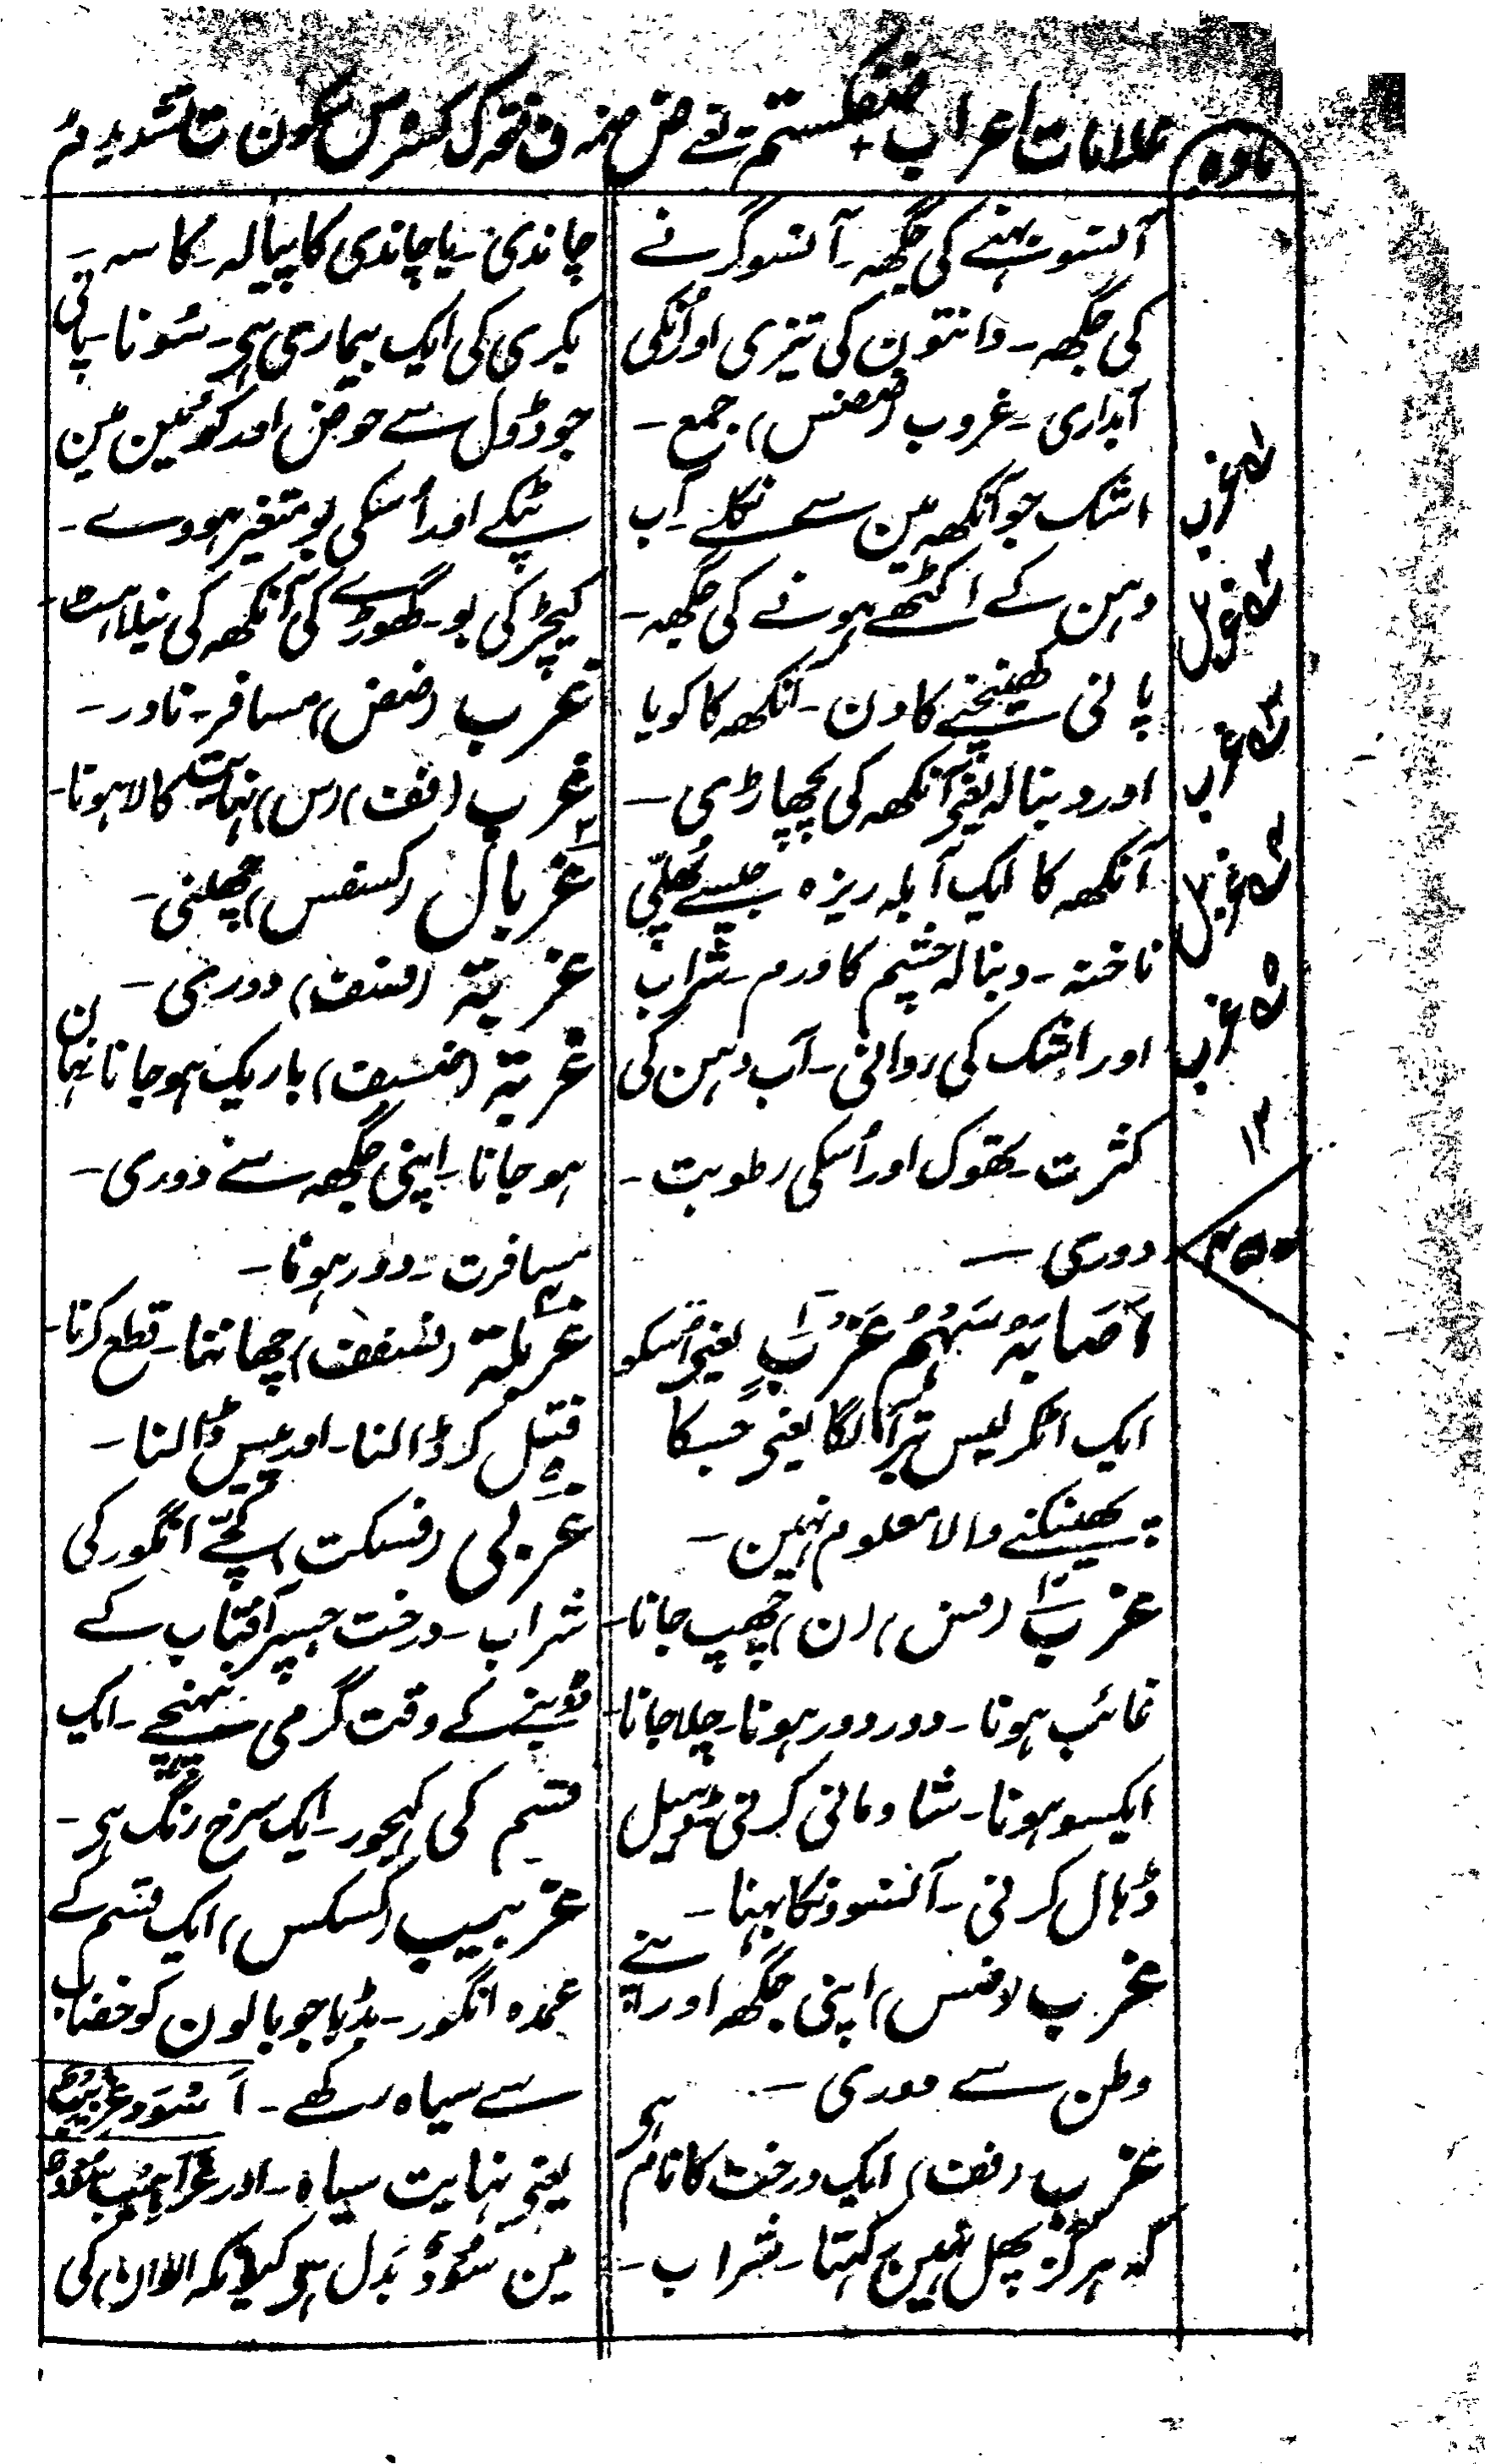 علامات اعراب ضفكستم تے ض ضمہ ف فتحہ ک کسرہ س سکون ت تشدید م
مادہ
آنسو بہنے کی جگہہ۔ آنسو گرنے
کی جگھہ۔ دانتون کی تیزی اور اُنکی
آبداری۔ غروب (ضضس) جمع۔
اشک جو آنکھہ مین سے نکلے۔ آب
دہن کے اکٹھے ہونے کی جگھہ۔
پانی کھینچنے کا دن۔ آنکھہ کا کویا
اور دنبالہ یعنی آنکھہ کی پچھاڑی۔
آنکھہ کا ایک آبلہ ریزہ جیسے پھلّی
ناخنہ۔ دنبالہ چشم کا ورم۔ شراب
اور اشک کی روانی۔ آب دہن کی
کثرت۔ تھوک اور اُسکی رطوبت۔
دوری۔
اَصَابَهُ سَهْمُ غَرْبٍ یعنی اُسکو
ایک اٹکر لیس تیر آ لگا یعنی جسکا
پھینکنے والا معلوم نہین۔
غرب (فس) (ن) چھپ جانا۔
غائب ہونا۔ دور دور ہونا۔ چلا جانا۔
ایکسو ہونا۔ شادمانی کرنی
ڈہال کرنی۔ آنسوونکا بہنا۔
غرب (ضس) اپنی جگھہ اور اپنے
وطن سے دوری۔
غرب (فف) ایک درخت کا نام ہی
کہ ہرگز پھل نہین رکہتا۔ شراب۔
چاندی۔ یا چاندی کا پیالہ۔ کاسہ۔
بکری کی ایک بیماری ہی۔ سُونا۔ پانی
جو ڈول سے حوض اور کوئین مین
ٹپکے اور اُسکی بو متغیر ہووے۔
کیچڑ کی بو۔ گھوڑے کی آنکھہ کی نیلاہٹ۔
غرب (ضض) مسافر۔ نادر۔
غرب (فف) (س) نہایت کالا ہونا۔
غربال (کسفس) چھلنی۔
غربة (فسف) دوری۔
غربة (ضسف) باریک ہو جانا نہان
ہو جانا۔ اپنی جگھہ سے دوری۔
مسافرت۔ دور ہونا۔
غربلة (فسفف) چھاننا۔ قطع کرنا۔
قتل کر ڈالنا۔ اور پیس ڈالنا۔
غربی (فسکت) کچّے انگور کی
شراب۔ درخت جسپر آفتاب کے
ڈوبنے کے وقت گرمی پہنچے۔ ایک
قسم کی کہجور۔ ایک سرخ رنگ ہی۔
غربیب (کسکس) ایک قسم کے
عمدہ انگور۔ بڈہا جو بالون کو خضاب
سے سیاہ رکھے۔ اَسْوَدُ غِرْبِيْبٌ
یعنی نہایت سیاہ۔ اور غَرَابِيْبُ سُوْدٌ
مین سُوْدٌ بَدَل ہی کیونکہ الوان کی
ط غرب
ط غربل
ط غرب
۱۲